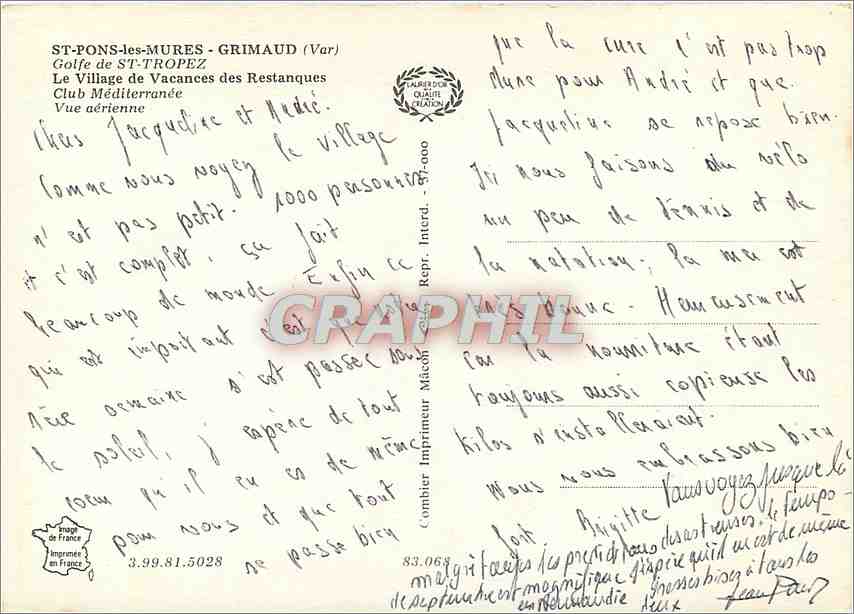 ST-PONS-les-MURES - GRIMAUD (Var)
Golfe de ST-TROPEZ
Le Village de Vacances des Restanques
Club Méditerranée
Vue aérienne
LAURIER D'OR
DE LA
QUALITÉ
CRÉATION
Chers Jacqueline et André.
Comme vous voyez le village
n'est pas petit. 1000 personnes
et c'est complet, ça fait
beaucoup de monde. Enfin ce
qui est important c'est que notre
1ère semaine s'est passée sous
le soleil, j'espère de tout
coeur qu'il en es de même
pour vous et que tout
se passe bien
que la cure c'est pas trop
dure pour André et que
Jacqueline se repose bien.
Ici nous faisons du vélo
un peu de tennis et de
la natation; la mer est
très bonne. Heureusement
car la nourriture étant
toujours aussi copieuse les
kilos s'installeraient.
Nous vous embrassons bien
fort. Brigitte
Vous voyez jusque là
malgré toutes les prédictions désastreuses, le temps
de septembre est magnifique j'espère qu'il en est de même
en Normandie Grosses bises à tous les
deux Jean Paul
Combier Imprimeur Mâcon Repr. Interd. - 37-000
CARAPHIL
Image
de France
Imprimée
en France
3.99.81.5028
83.068